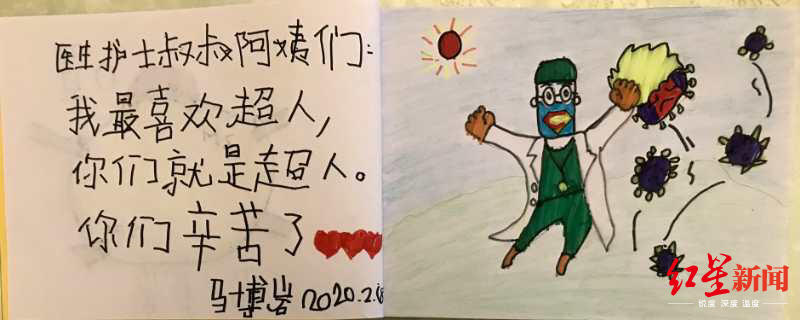 医生护士叔叔阿姨们:
我最喜欢超人,
你们就是超人。
你们辛苦了
马博岩 2020.2.
红星新闻
锐度 深度 温度